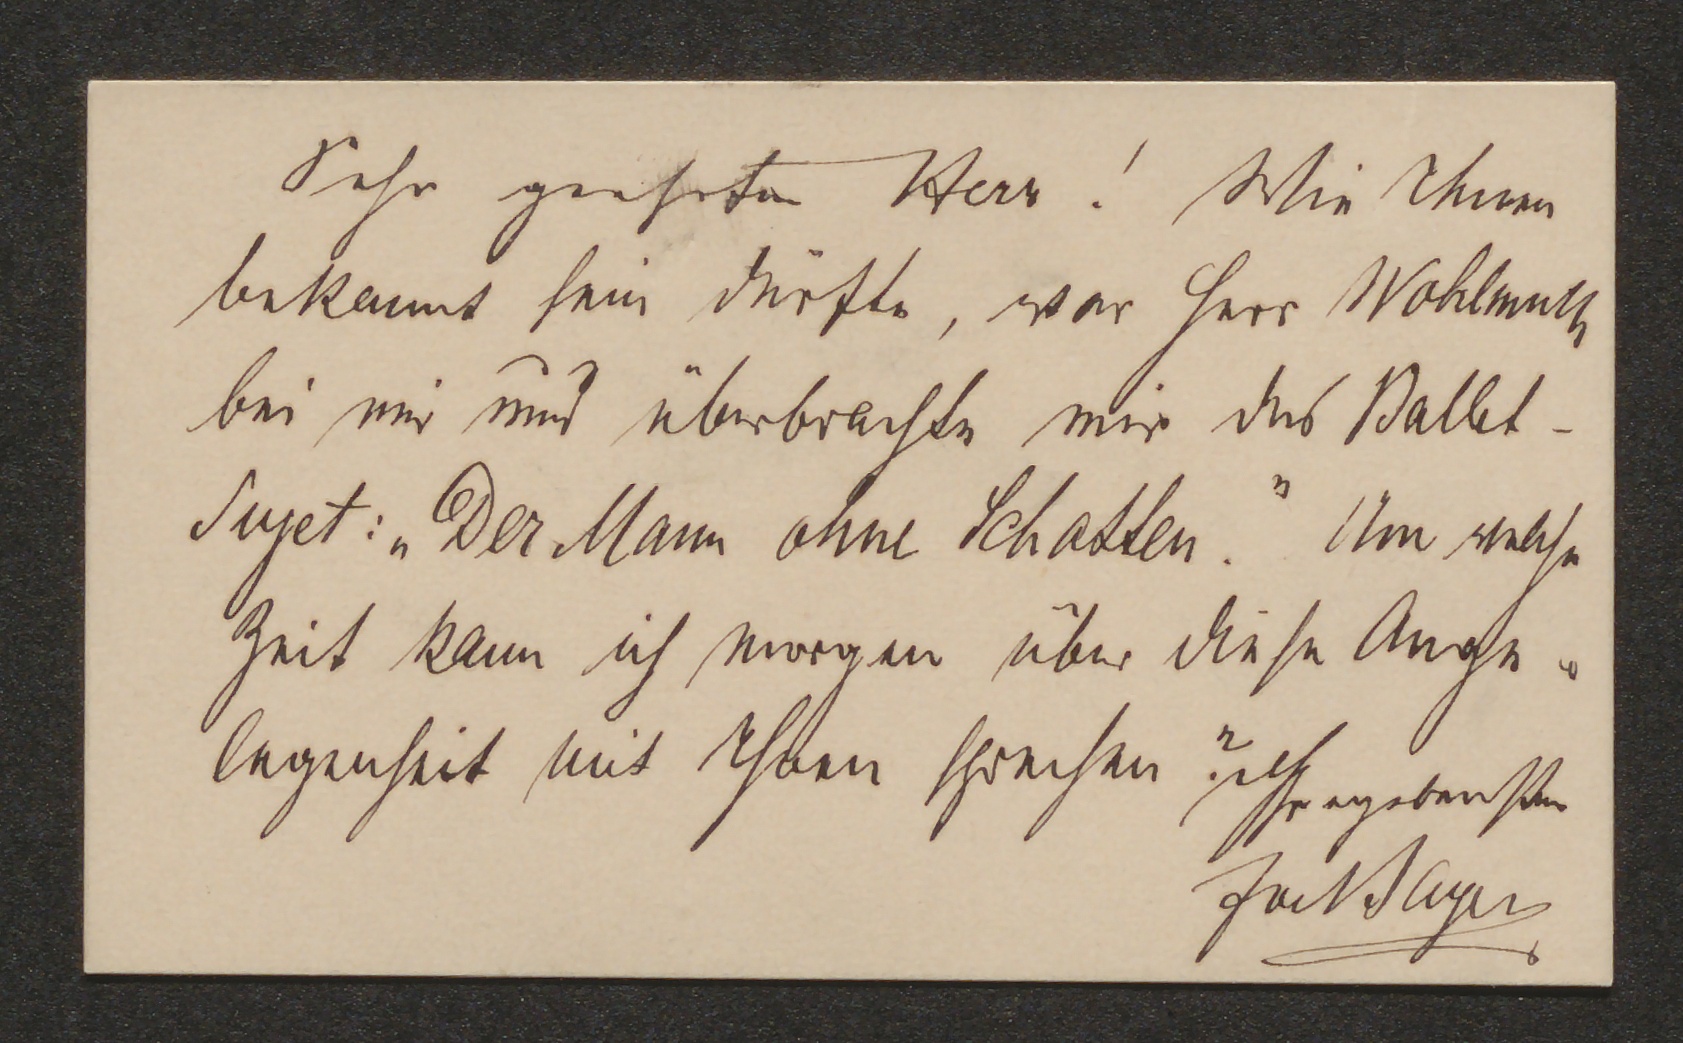 Sehr geehrter Herr! Wie Ihnen
bekannt sein dürfte, war Herr Wohlmuth
bei mir und überbrachte mir das Ballet-
Sujet: „Der Mann ohne Schatten.“ Um welche
Zeit kann ich morgen über diese Ange„
legenheit mit Ihnen sprechen? Ihr ergebenster
Jos Bayer